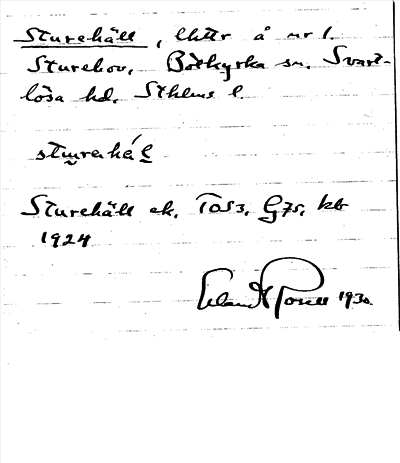 Sturehäll, lhtr å nr 1.
Sturehov, Botkyrka sn. Svart-
lösa hd. Sthlms l.
stu̬rehä́l̲
Sturehäll ek. To53, G75, kb
1924
Erland Rosell 1930.